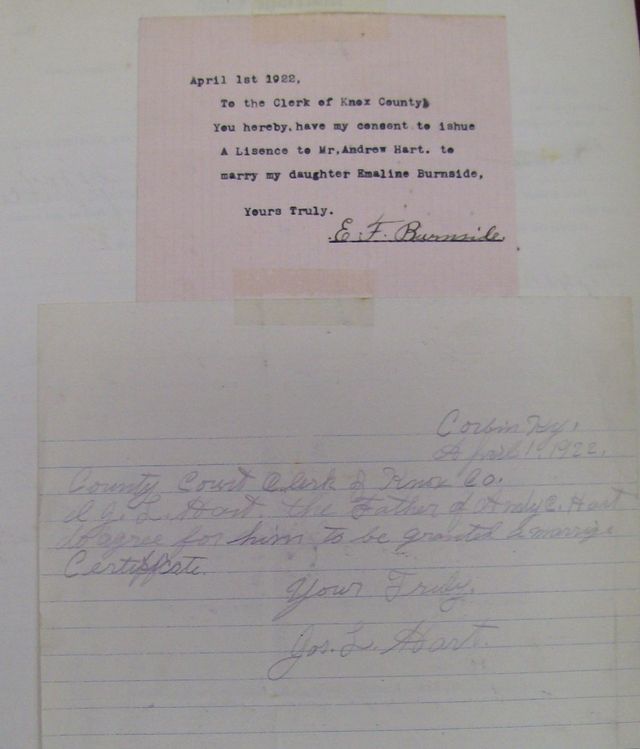 April 1st 1922,
To the Clerk of Knox County,
You hereby, have my consent to ishue
A Lisence to Mr, Andrew Hart. to
marry my daughter Emaline Burnside,
Yours Truly.
E. F. Burnside.
Corbin Ky.
April 1, 1922.
County Court Clerk of Knox Co.
I J. L. Hart the Father of Andy C. Hart
do agree for him to be granted a marrige
Certificate.
Your Truly,
Jos. L. Hart.